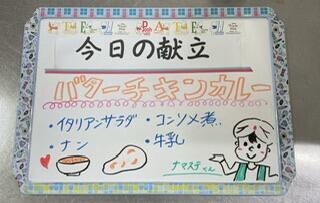 今日の献立
バターチキンカレー
・イタリアンサラダ ・コンソメ煮
・ナン ・牛乳
ナマステくん